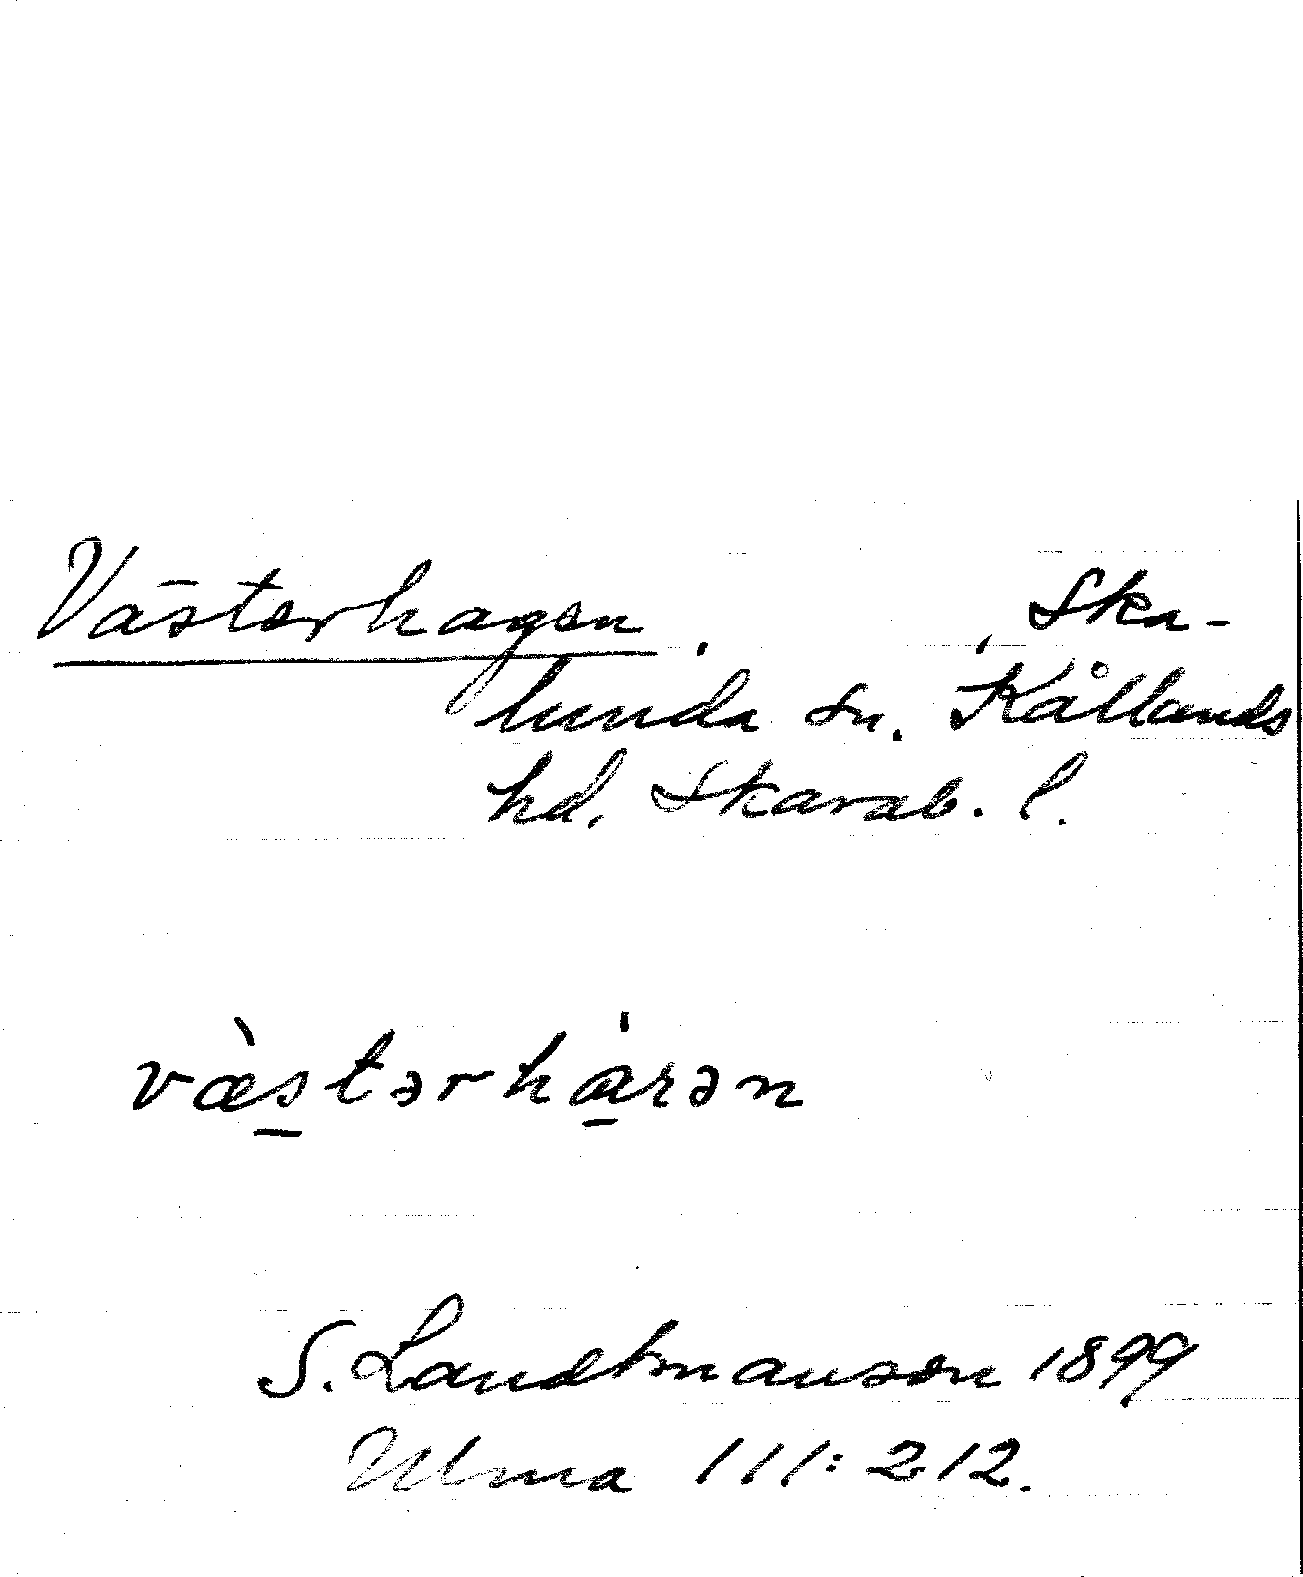 Västerhagen. Ska-
lunda sn. Kållands
hd. Skarab. l.
væ̀stərhárən
S. Landtmanson 1899
Ulma 111:212.